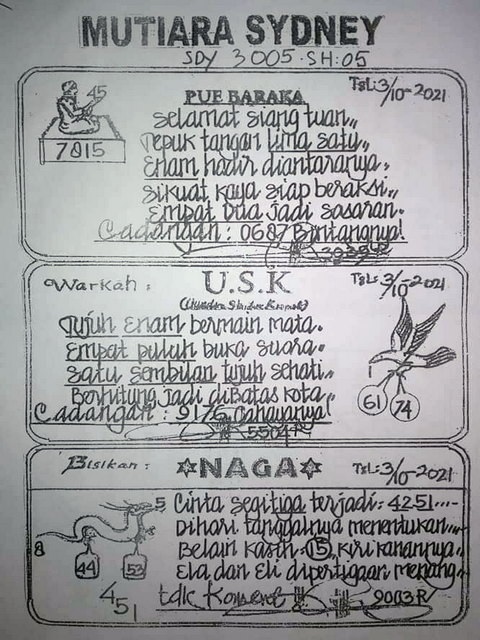 MUTIARA SYDNEY
SDY 3005.SH:05
Tgl:3/10-2021
45
7815
PUE BARAKA
Selamat siang tuan,,
Tepuk tangan lima satu,,
Enam hadir diantaranya,
Sikuat kaya siap beraksi,,
Empat dua jadi sasaran.
Cadangan: 0687 Bintangnya!
Warkah:
U.S.K
Tgl:3/10-2021
Tujuh Enam bermain mata.
Empat puluh buka suara.
Satu sembilan tujuh sehati.
Berhitung jadi dibatas kota,
Cadangan: 9176 Cahayanya!
61
74
Bisikan:
NAGA
Tgl:3/10-2021
5
8
44
52
4
5
1
Cinta segitiga terjadi: 4251...
Dihari tanggalnya menentukan,,
Belain kasih (15), kiri kanannya,,
Ela dan Eli dipertigaan menang,,
9003R